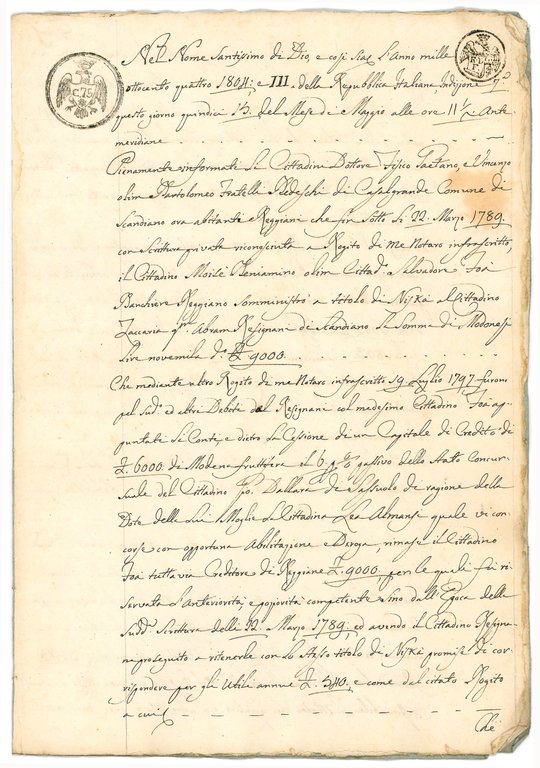 C. 75
Nel Nome Santissimo di Dio, e così sia l'Anno mille
ottocento quattro 1804: e III. della Repubblica Italiana Indizione 7.ª
questo giorno quindici 15. del Mese di Maggio alle ore 11½ Ante
meridiane
Pienamente informati li Cittadini Dottore Fisico Gaetano, e Vincenzo
olim Bartolomeo Fratelli Bedeschi di Casalgrande Comune di
Scandiano ora abitanti Reggiani che fin sotto li 22. Marzo 1789.
con Scrittura privata riconosciuta a Rogito di me Notaro infrascritto,
il Cittadino Moisè Beniamino olim Cittad. Salvadore Foà
Banchiere Reggiano Somministrò a titolo di Niskà al Cittadino
Zaccaria qm. Abram Resignani di Scandiano la Somma di Modonesi
Lire novemila d.e £ 9000.
Che mediante altro Rogito di me Notaro infrascritto 19 Luglio 1797 furono
pel sud.º ed altri Debiti del Resignani col medesimo Cittadino Foà ap-
puntati li Conti, e dietro la Cessione di un Capitale di Credito di
£. 6000 di Modena fruttifera al 6 p% passivo dello Stato Concur-
suale del Cittadino Dallara de Sassuolo di ragione della
Dote della lui Moglie la Cittadina Lea Almansi quale vi con-
corse con opportuna Abilitazione e Deroga, rimase il Cittadino
Foà tuttavia Creditore di £. 9000. per le quali fu ri-
servata l'anteriorità, e poziorità competente sino dall'Epoca della
Sudd. Scrittura delli 22 Marzo 1789; ed avendo il Cittadino Resigna-
ni proseguito a ritenerle con lo stesso titolo di Niskà promise di cor-
rispondere per gli Utili annue £. 540. e come dal citato Rogito
a cui
Che